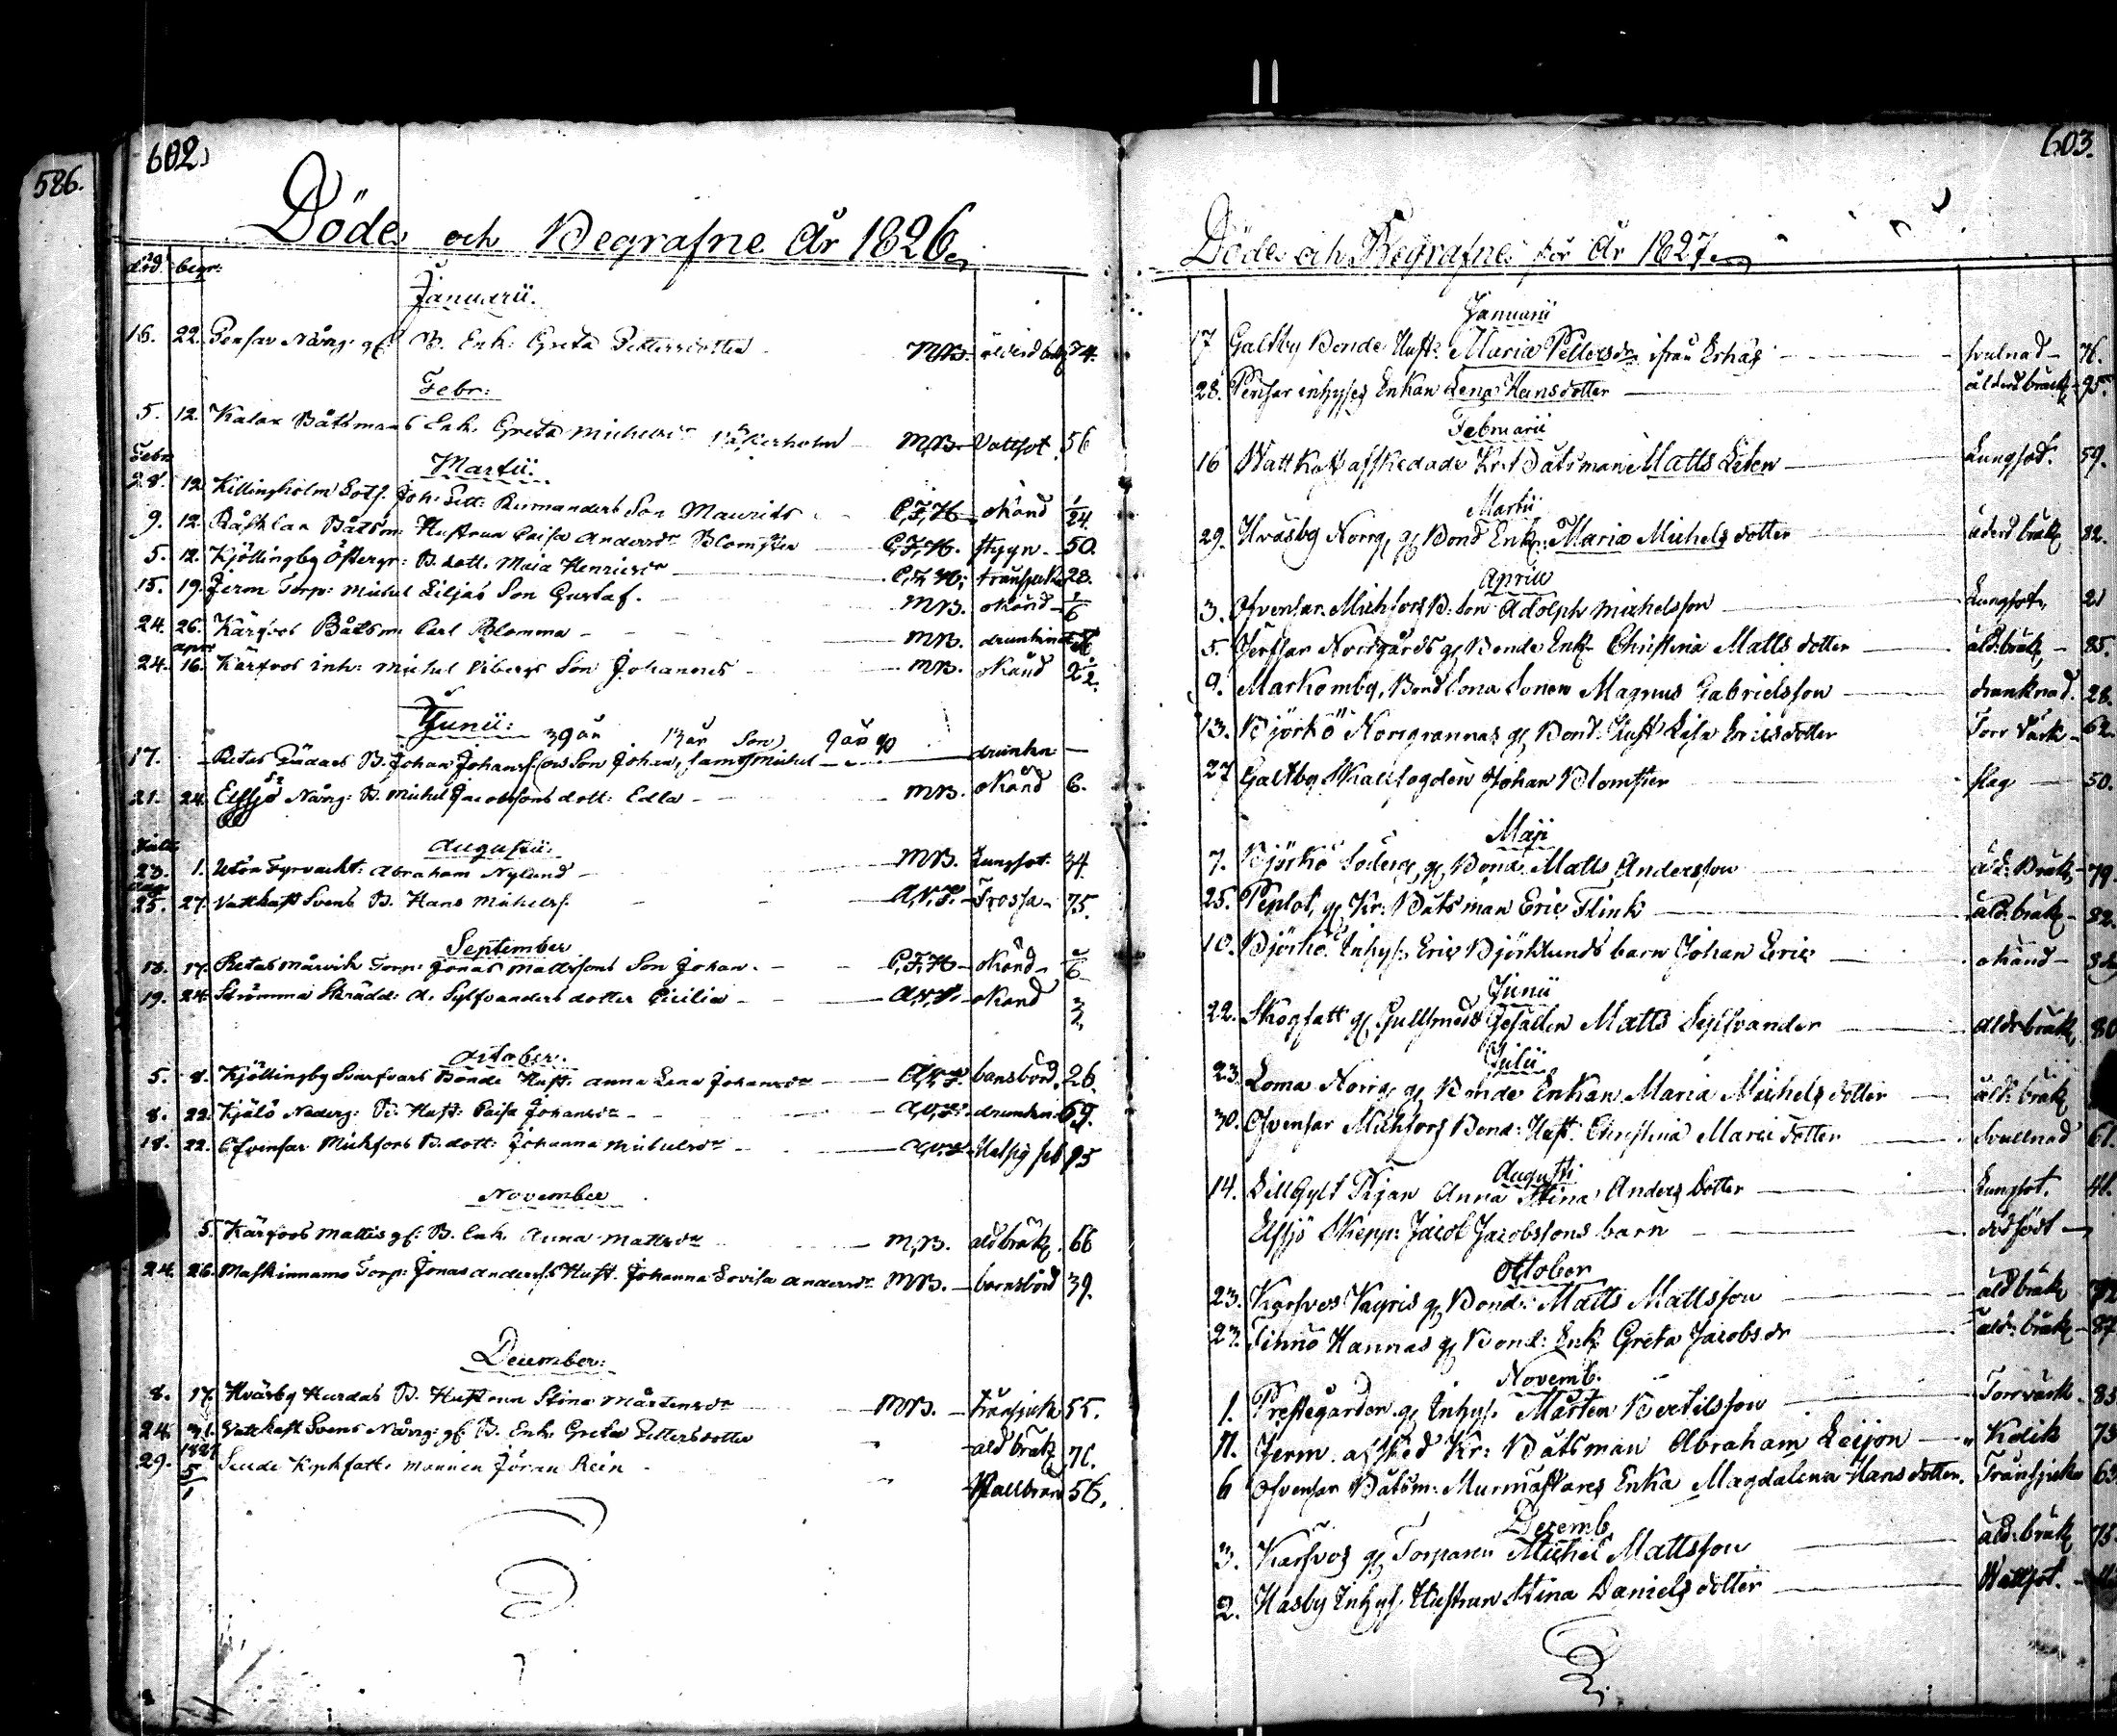 586.
602)
Döde och Begrafne År 1826.
död. begr:
Januarii.
16. 22. Pensar Nårrg: gf. B. Enk: Greta Pettersdotter MB. ålderd bråk 74.
Febr:
5. 12. Kalax Båtsmans Enk. Greta Michelsdr Påkerholm MB. Vattsot 56
Febr.
Martii.
28. 12. Killingholm Lots. Joh: Pett: Rumanders Son Maurits C,F,H. okänd 1/24.
9. 12. Båtsm: Hustrun Caisa Andersdr Blomster C,F,H. stygn 50.
5. 12. Kjöllingby Östergr: B. dott. Maia Henricsdr C,F,H; transjuka 28.
15. 19. Jerm Torp: Michel Liljas Son Gustaf. MB. okänd 1/6
24. 26. Kärfvos Båtsm: Carl Blomma MB. drunkna
apr:
24. 16. Kärfvos inh: Michel Vibergs Son Johannes MB. okänd 2 1/2.
Junii:
39 år 13 år Son 9 år
17. Retas Rädars B. Johan Johansf. Son Johan, samt Michel drunkn
21. 24. Elfsjö Nårrg: B. Michel Jacobssons dott: Edla MB. okänd 6.
Julii
Augustii:
23. 1. Utön Fyrvackt: Abraham Nylund MB. Lungsot 34
Aug.
25. 27. Vattkast Svens B. Hans Michelsf. A,V,F. Frossa 75.
September
13. 17. Retas mårvik Torp: Jonas Mattssons Son Johan. C,F,H okänd /6
19. 24. Strömma Skrädd: A. Sylfvanders dotter Cicilia A,V,F. okänd
October:
5. 8. Kjöllingby Svarfvars Bonde Hust: Anna Lena Johansdr A,V,F. barsbörd. 26.
8. 22. Kjälö Nederg: B. Hust: Caisa Johansdr A,V,F. drunkn 69.
18. 22. Ofvensar Mickfors B. dott: Johanna Michelsdr A,V,F. Hetsig feb
November
5. Kärfvos Mattis gf. B. Enk. Anna Mattsdr M,B. åld bråk. 66
24. 26. Maskinnamo Torp: Jonas Anderss Hust. Johanna Lovisa Andersdr MB. barnsbörd 39.
December:
8. 17. Hvärby Hurdas B. Hustrun Stina Mårtensdr MB. tränsjuk 55.
24. 31. Vattkast Svens Nårrg: gf. B. Enk. Greta Pettersdotter åld bråk 71.
1827
29. 5/1 mannen Jöran Rein Kallbrand 56.
603.
Döde och Begrafne för År 1827.
Januarii
17 Galtby Bonde Hust: Maria Pettersdr ifrån Erhäs svulnad 76.
28. Pensar inhyses Enkan Lena Hansdotter ålderd bräck 95.
Februarii
16 Wattkast afskedade Kr. Båtsman Matts Liten Lungsot. 59.
Martii
29. Hvasby Norrg, gf Bond Enk: Maria Michels dotter åderd bräk 82.
Aprill
3. Ofvensar Michfors B: son Adolph Michelsson Lungsot, 21
5. Jerfsor Norrgårds gf Bonde Enk Christina Matts dotter åld: bräk 85.
9. Markomby, Bond sona sonen Magnus Gabrielsson drunknad. 28.
13. Björkö Norrgrannas gf Bond: Hust Lisa Ericsdotter Torr värk 62.
27 Galtby Skallfogden Johan Blomster slag 50.
Maji
7. Björkö Söderg, gf Bond: Matts Andersson åld: Bräk 79.
25. Penlot, gf Kr: Båtsman Eric Flink åld: bräk 82.
10. Björkö Inhys: Eric Björklunds barn Johan Eric okänd
Junii
22. Skogsatt gf. Gullsmeds Gesällen Matts Sylfvander ålds bräk 80
Julii
23. Loma Norrg, gf Bonde Enkan Maria Michels dotter åld: bräk
30. Ofvensar Michfors Bond: Hust: Christina Maria dotter Svullnad 61.
Augusti
14. Lillgylt Pigan Anna Stina Anders dotter Lungsot. 41.
Elfsjö Skepp: Jacob Jacobssons barn dödfödt
October
23. Kärfvos Kayris gf Bond: Matts Mattsson åld bräk 72
23. Hannas gf Bond: Enk Greta Jacobs dr åld: bräk 87
Novemb.
1. Prestegården gf Inhys. Mårten Bertilsson Torrvärk 83.
11. Jerm afsked Kr: Båtsman Abraham Leijon Kolik 73
6 Ofvensar Båtsm: Murmästares Enka Magdalena Hans dotter. Transjuka 63
Decemb
3. Kärfvos gf Torparen Michel Mattsson åld: bräk 75.
2. Hasby Inhys. Hustrun Stina Daniels dotter Wattsot.